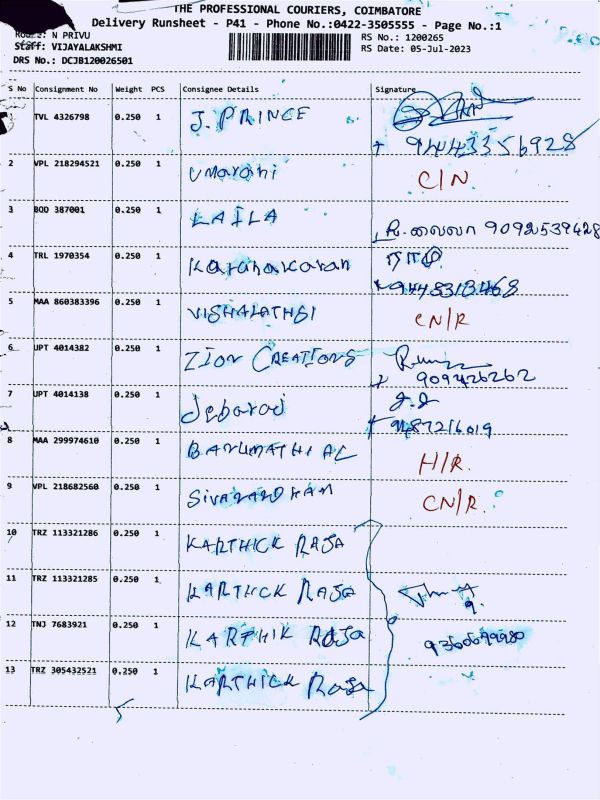 THE PROFESSIONAL COURIERS, COIMBATORE
Delivery Runsheet - P41 - Phone No.:0422-3505555 - Page No.:1
N PRIVU
RS No.: 1200265
Staff: VIJAYALAKSHMI
RS Date: 05-Jul-2023
DRS No.: DCJB120026501
S No Consignment No Weight PCS Consignee Details Signature
TVL 4326798 0.250 1 J. PRINCE
9444335 6928
2 VPL 218294521 0.250 1 Umarani C/N
3 BOD 387001 0.250 1 LAILA R. லைலா 9092539428
4 TRL 1970354 0.250 1 Karunakaran
9448313468
5 MAA 860383396 0.250 1 VISHALATHSI CN/R
6 UPT 4014382 0.250 1 ZION CREATIONS
909426262
7 UPT 4014138 0.250 1 Jebaraj J.J
9487216019
8 MAA 299974610 0.250 1 BANUMATHI AL H/R.
9 VPL 218682560 0.250 1 SIVANANDHAM CN/R.
10 TRZ 113321286 0.250 1 KARTHICK RAJA
11 TRZ 113321285 0.250 1 KARTHICK RAJA
12 TNJ 7683921 0.250 1 KARTHIK RAJA 9360699980
13 TRZ 305432521 0.250 1 KARTHICK RAJA